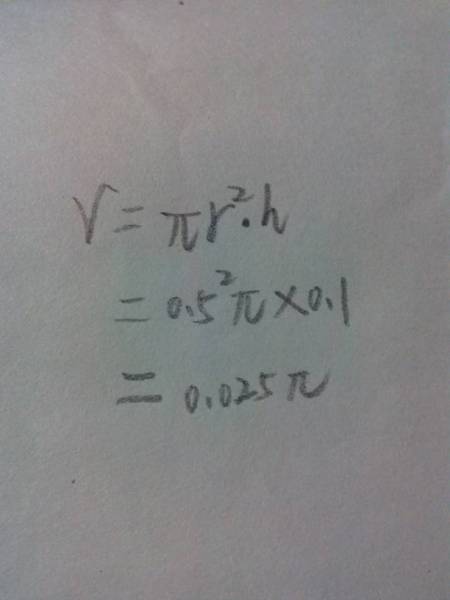 V = πr²·h
= 0.5²π×0.1
= 0.025π